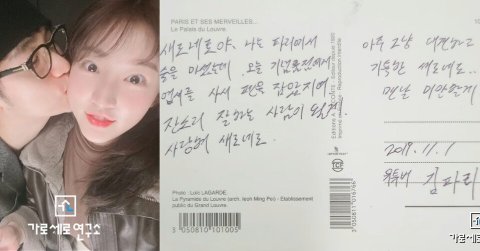 PARIS ET SES MERVEILLES...
Le Palais du Louvre.
새로네로야, 나는 파리에서
술을 마셨는데 오늘 기념품점에서
엽서를 사서 펜을 잡았지여.
잔소리 잘하는 사람이
사랑해 새로네로.
Photo : Loïc LAGARDE
La Pyramide du Louvre (arch. Ieoh Ming Pei) - Etablissement
public du Grand Louvre.
3 050810 101005
Reproduction interdite
3 050810 016766
아주 그냥 대견하고
기특한 새로네로..
맨날 미안할게
2018. 11. 1
김파리
가로세로연구소
가로세로연구소